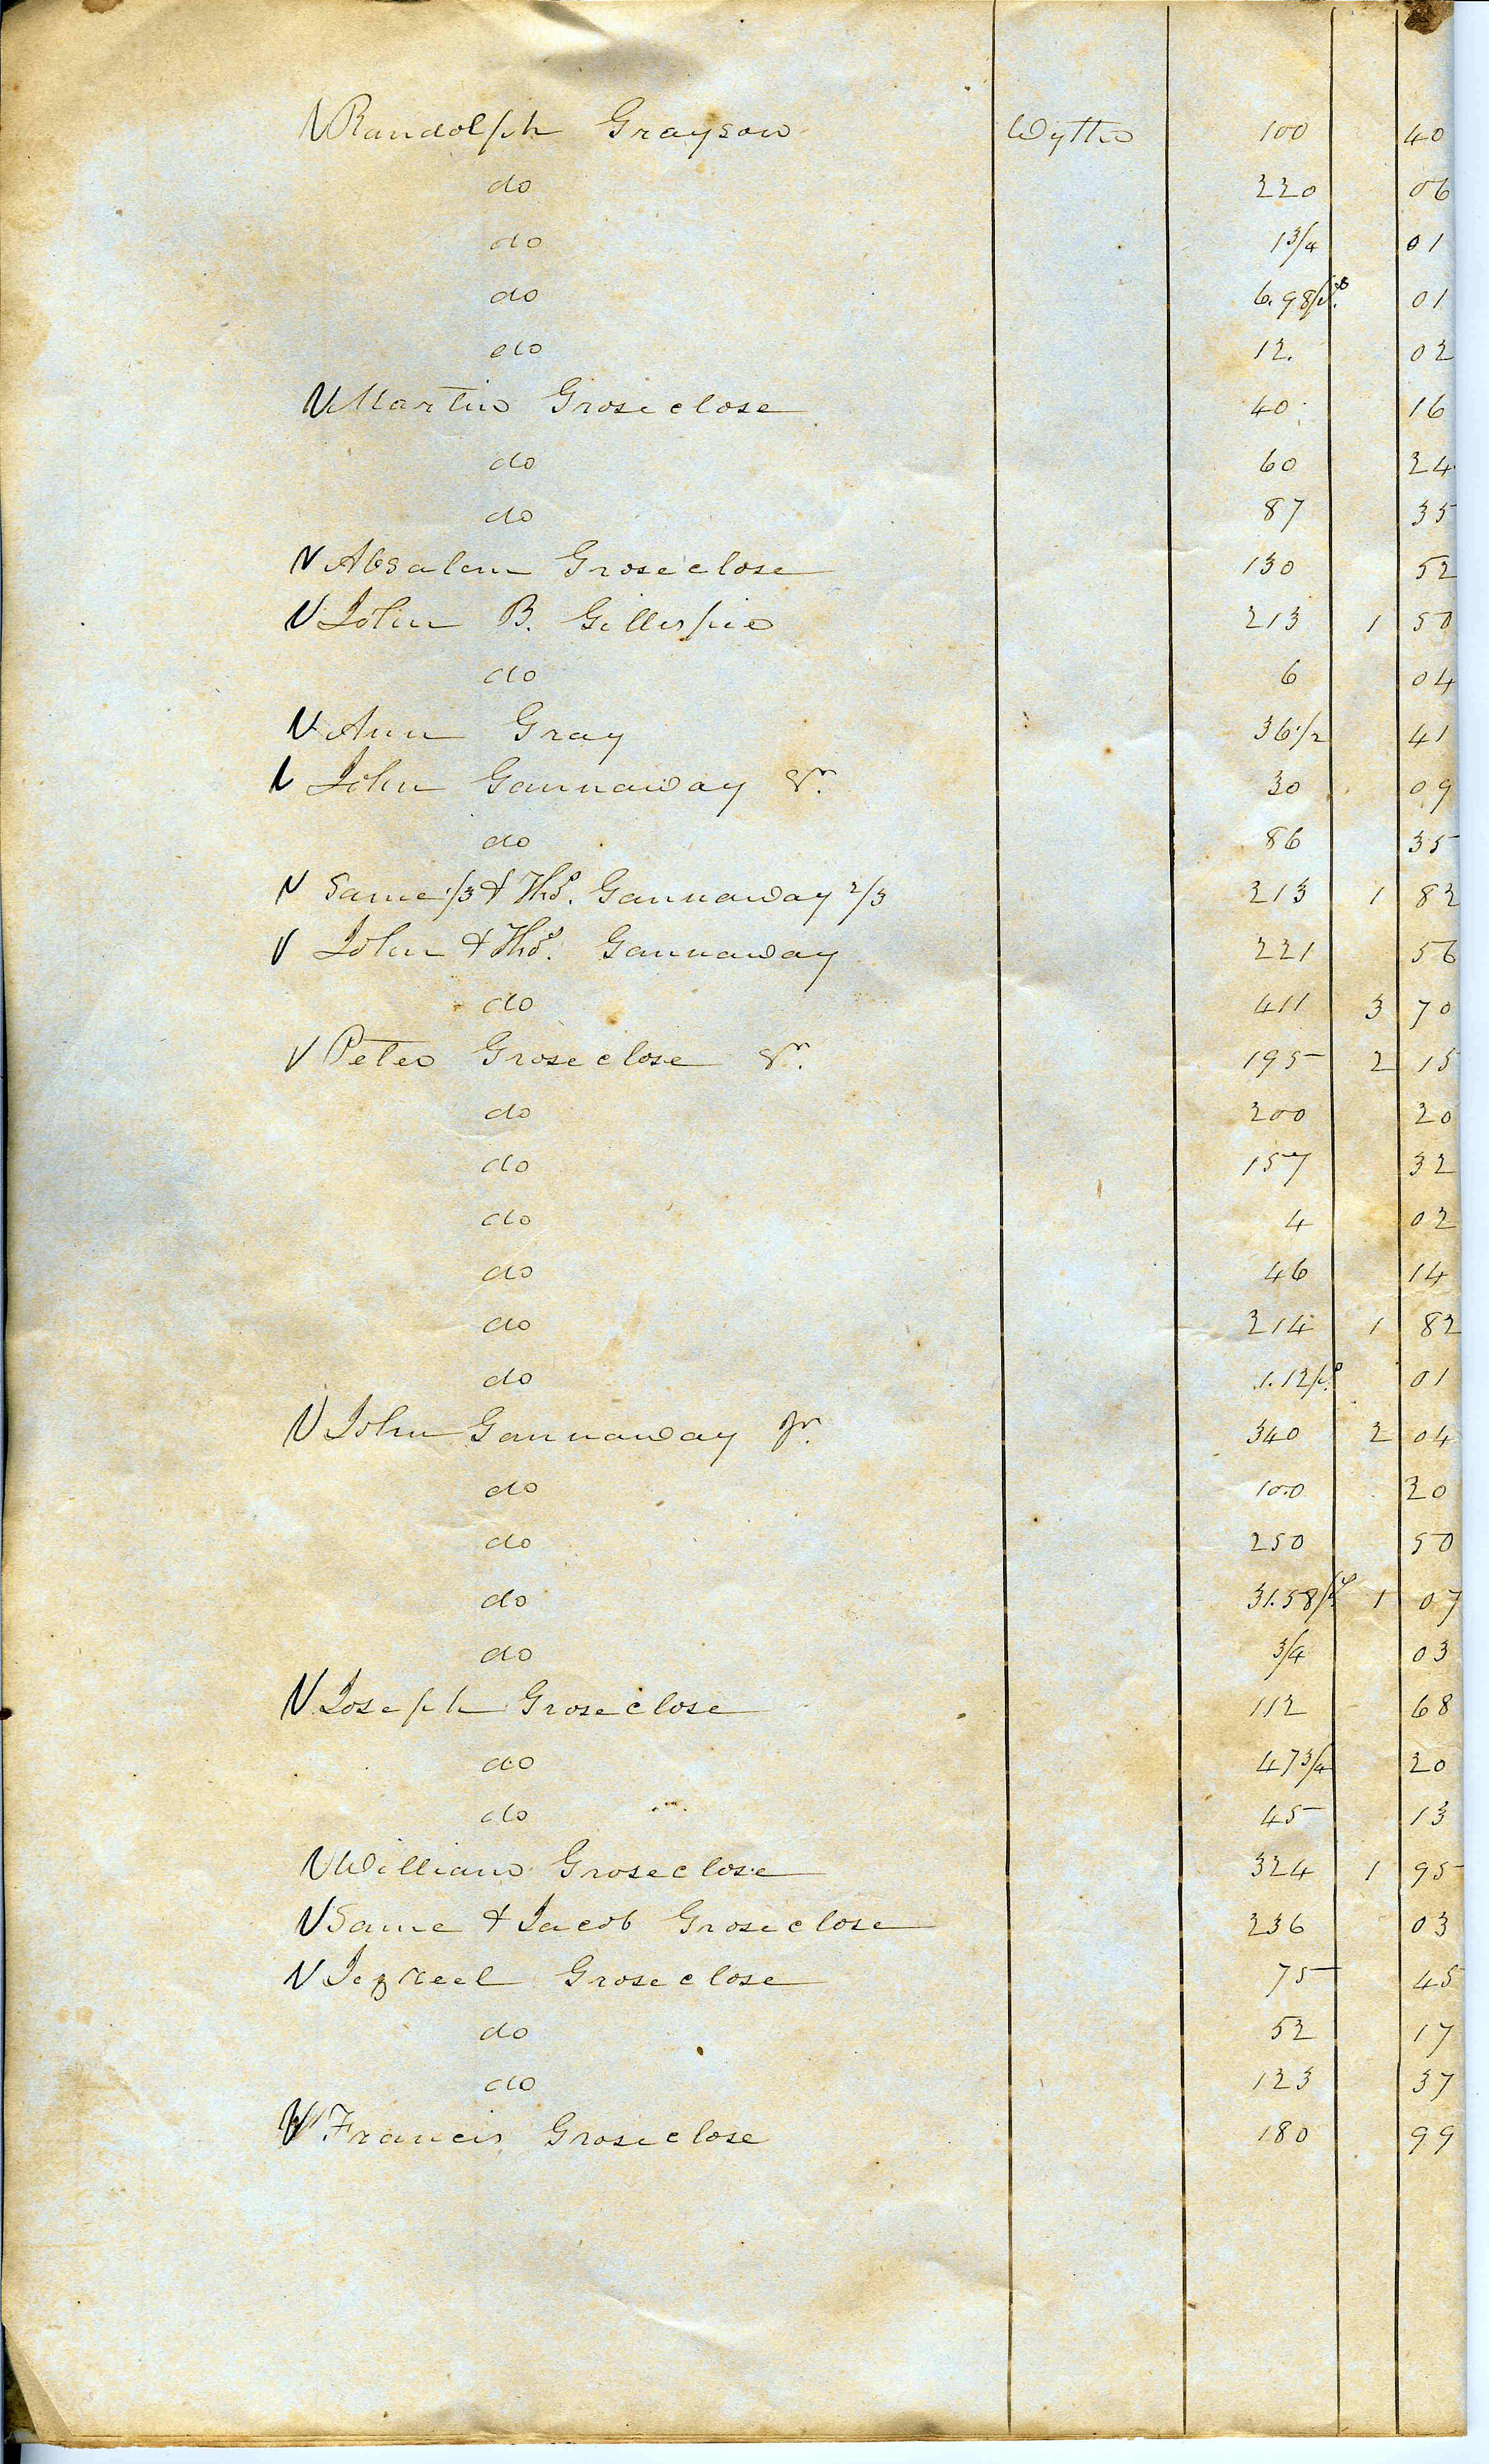 Randolph Grayson Wythe 100 40
do 220 06
do 1 3/4 01
do 6.98/ps. 01
do 12. 02
Martin Groseclose 40 16
do 60 24
do 87 35
Absalem Groseclose 130 52
John B. Gillespie 213 1 50
do 6 04
Ann Gray 36 1/2 41
John Gannaway Sr. 30 09
do 86 35
Same 1/3 & Thos. Gannaway 2/3 213 1 82
John & Thos. Gannaway 221 56
do 411 3 70
Peter Groseclose Sr. 195 2 15
do 200 20
do 157 32
do 4 02
do 46 14
do 214 1 82
do 1.12/ps. 01
John Gannaway Jr. 340 2 04
do 100 20
do 250 50
do 31.58/ps. 1 07
do 3/4 03
Joseph Groseclose 112 68
do 47 3/4 20
do 45 13
William Groseclose 324 1 95
Same & Jacob Groseclose 236 03
Jezreel Groseclose 75 45
do 52 17
do 123 37
Francis Groseclose 180 99